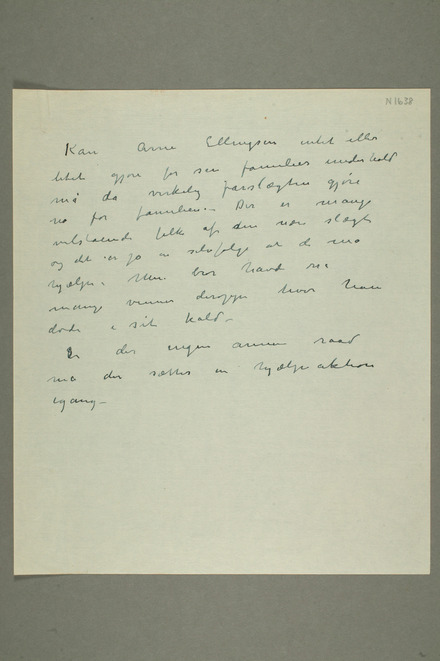 N 1638
Kan Arne Ellingsen intet eller
litet gjøre for sin families underhold
må da virkelig farslægten gjøre
no for familien. Der er mange
velstaaende folk af den nære slægt
og det er jo en selvfølge at de må
hjælpe. Men
mange venner deroppe hvor han
døde i sit kald –
Er der ingen annen raad
må der sættes en hjælpeaktion
igang –